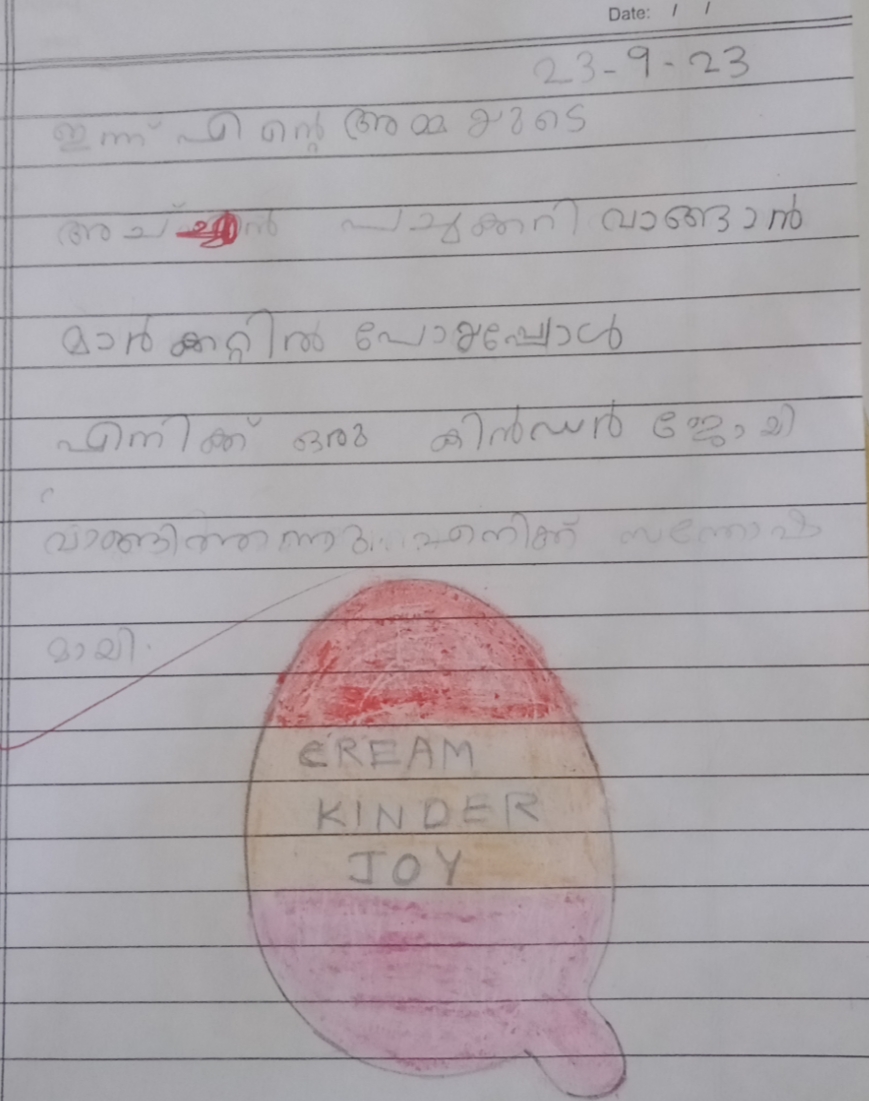 Date: / /
23-9-23
ഇന്ന് എന്റെ അമ്മയുടെ
അച്ഛൻ പച്ചക്കറി വാങ്ങാൻ
മാർക്കറ്റിൽ പോയപ്പോൾ
എനിക്ക് ഒരു കിൻഡർ ജോയി
വാങ്ങിത്തന്നു. എനിക്ക് സന്തോഷ
മായി.
CREAM
KINDER
JOY